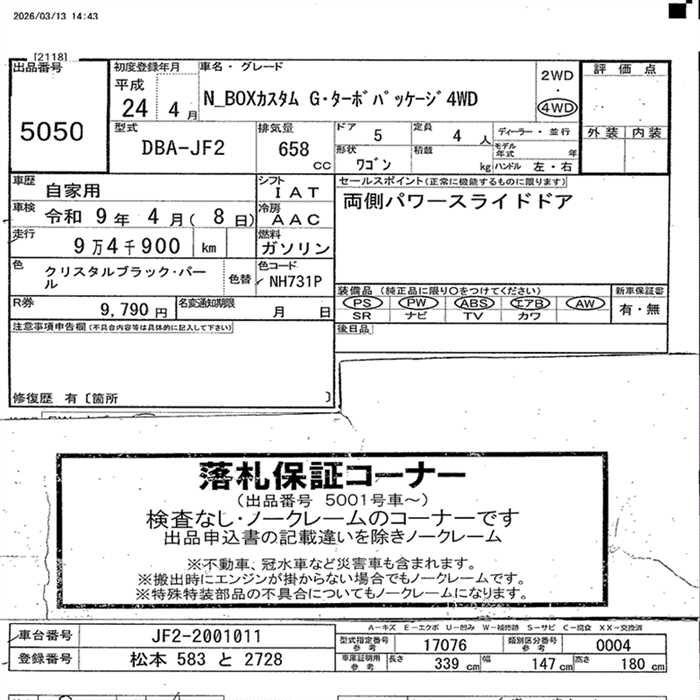 2026/03/13 14:43
[2118]
出品番号
5050
初度登録年月
平成
24 4 月
車名・グレード
N_BOXカスタム G・ターボパッケージ4WD
2WD
4WD
評価点
外装 内装
型式
DBA-JF2
排気量
658
cc
ドア 5
定員 4 人
形状 ワゴン
積載 kg
ディーラー・並行
モデル年式 年
ハンドル 左・右
車歴
自家用
シフト
IAT
車検 令和 9 年 4 月 ( 8 日)
冷房
AAC
走行 9 万 4 千 900 km
燃料
ガソリン
色
クリスタルブラック・パール
色替
色コード
NH731P
R券 9,790 円
名変通知期限
月 日
セールスポイント(正常に機能するものに限ります)
両側パワースライドドア
装備品 (純正品に限り○をつけてください)
PS PW ABS エアB AW
SR ナビ TV カワ
新車保証書
有・無
後日品
注意事項申告欄(不具合内容等は具体的に記入して下さい)
修復歴 有〔箇所 〕
落札保証コーナー
(出品番号 5001号車~)
検査なし・ノークレームのコーナーです
出品申込書の記載違いを除きノークレーム
※不動車、冠水車など災害車も含まれます。
※搬出時にエンジンが掛からない場合でもノークレームです。
※特殊特装部品の不具合についてもノークレームになります。
A-キズ E-エクボ U-凹み W-補修跡 S-サビ C-腐食 XX-交換済
車台番号 JF2-2001011
型式指定番号 参考 17076
類別区分番号 参考 0004
登録番号 松本 583 と 2728
車庫証明用 参考 長さ 339 cm 幅 147 cm 高さ 180 cm